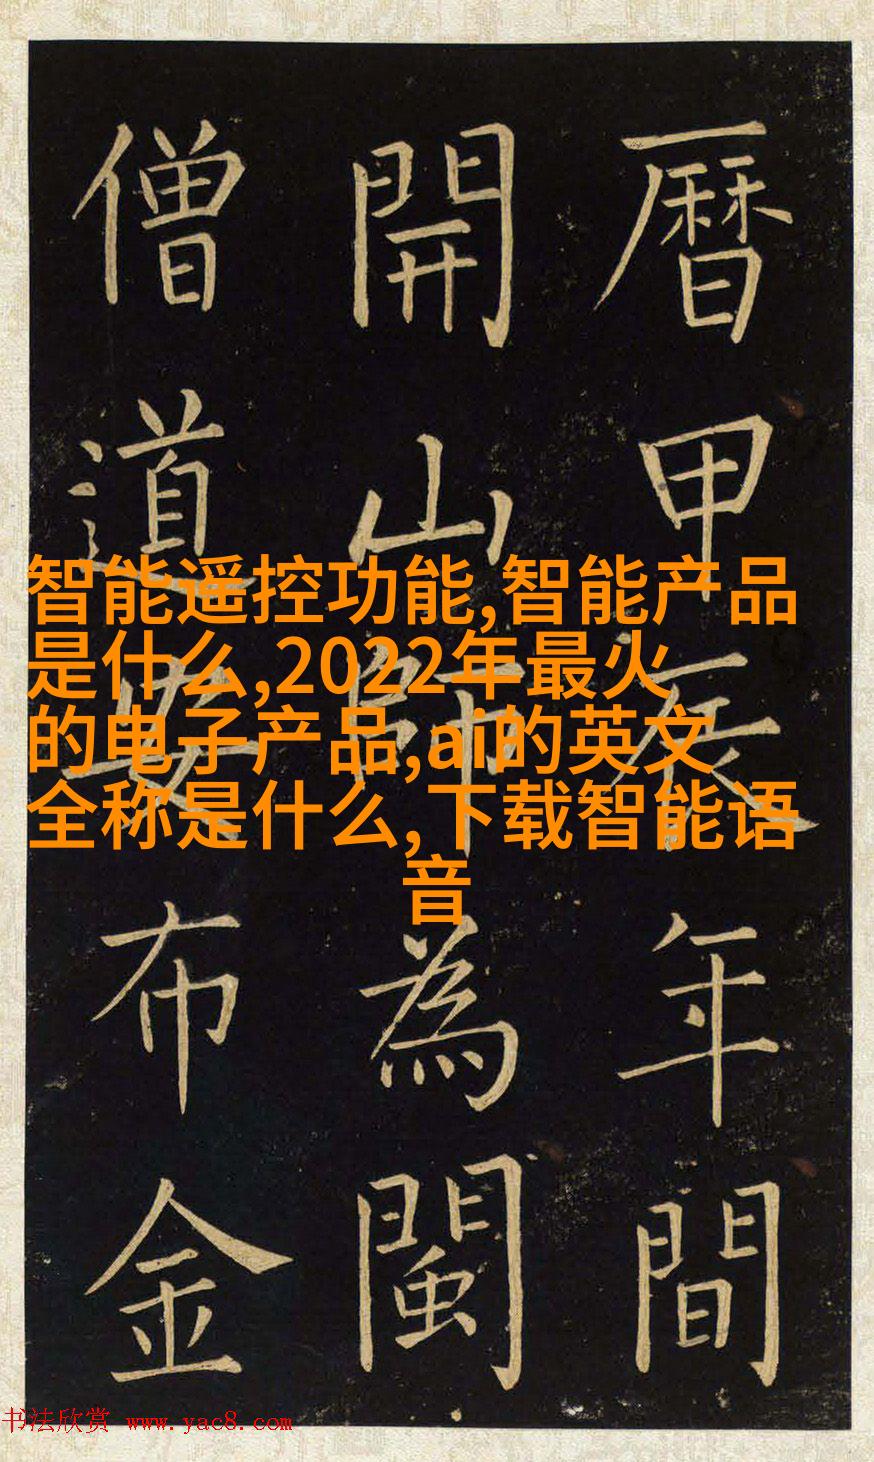 曆甲辰年間
開山師為閩
僧道布金
智能遥控功能,智能产品
是什么,2022年最火
的电子产品,ai的英文
全称是什么,下载智能语
音
书法欣赏 www.yac8.com